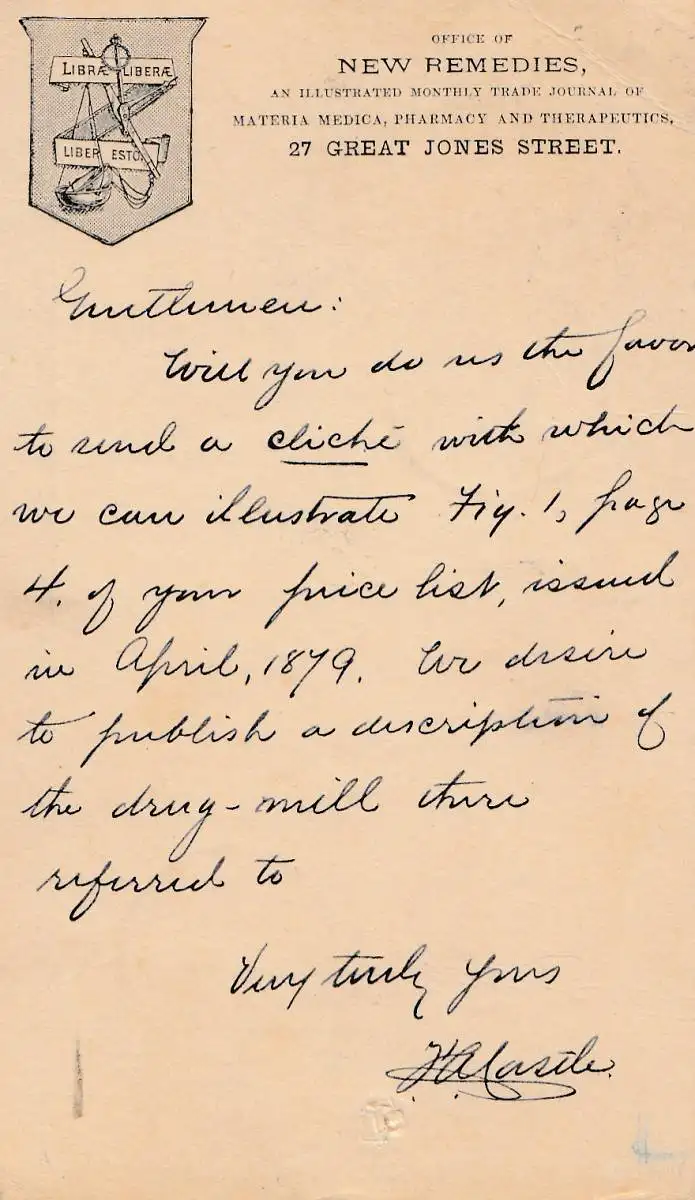 LIBRÆ LIBERÆ
LIBER ESTO
OFFICE OF
NEW REMEDIES,
AN ILLUSTRATED MONTHLY TRADE JOURNAL OF
MATERIA MEDICA, PHARMACY AND THERAPEUTICS,
27 GREAT JONES STREET.
Gentlemen:
Will you do us the favor
to send a cliché with which
we can illustrate Fig. 1, page
4. of your price list, issued
in April, 1879. We desire
to publish a description of
the drug-mill there
referred to
Very truly yours
F. A. Castle